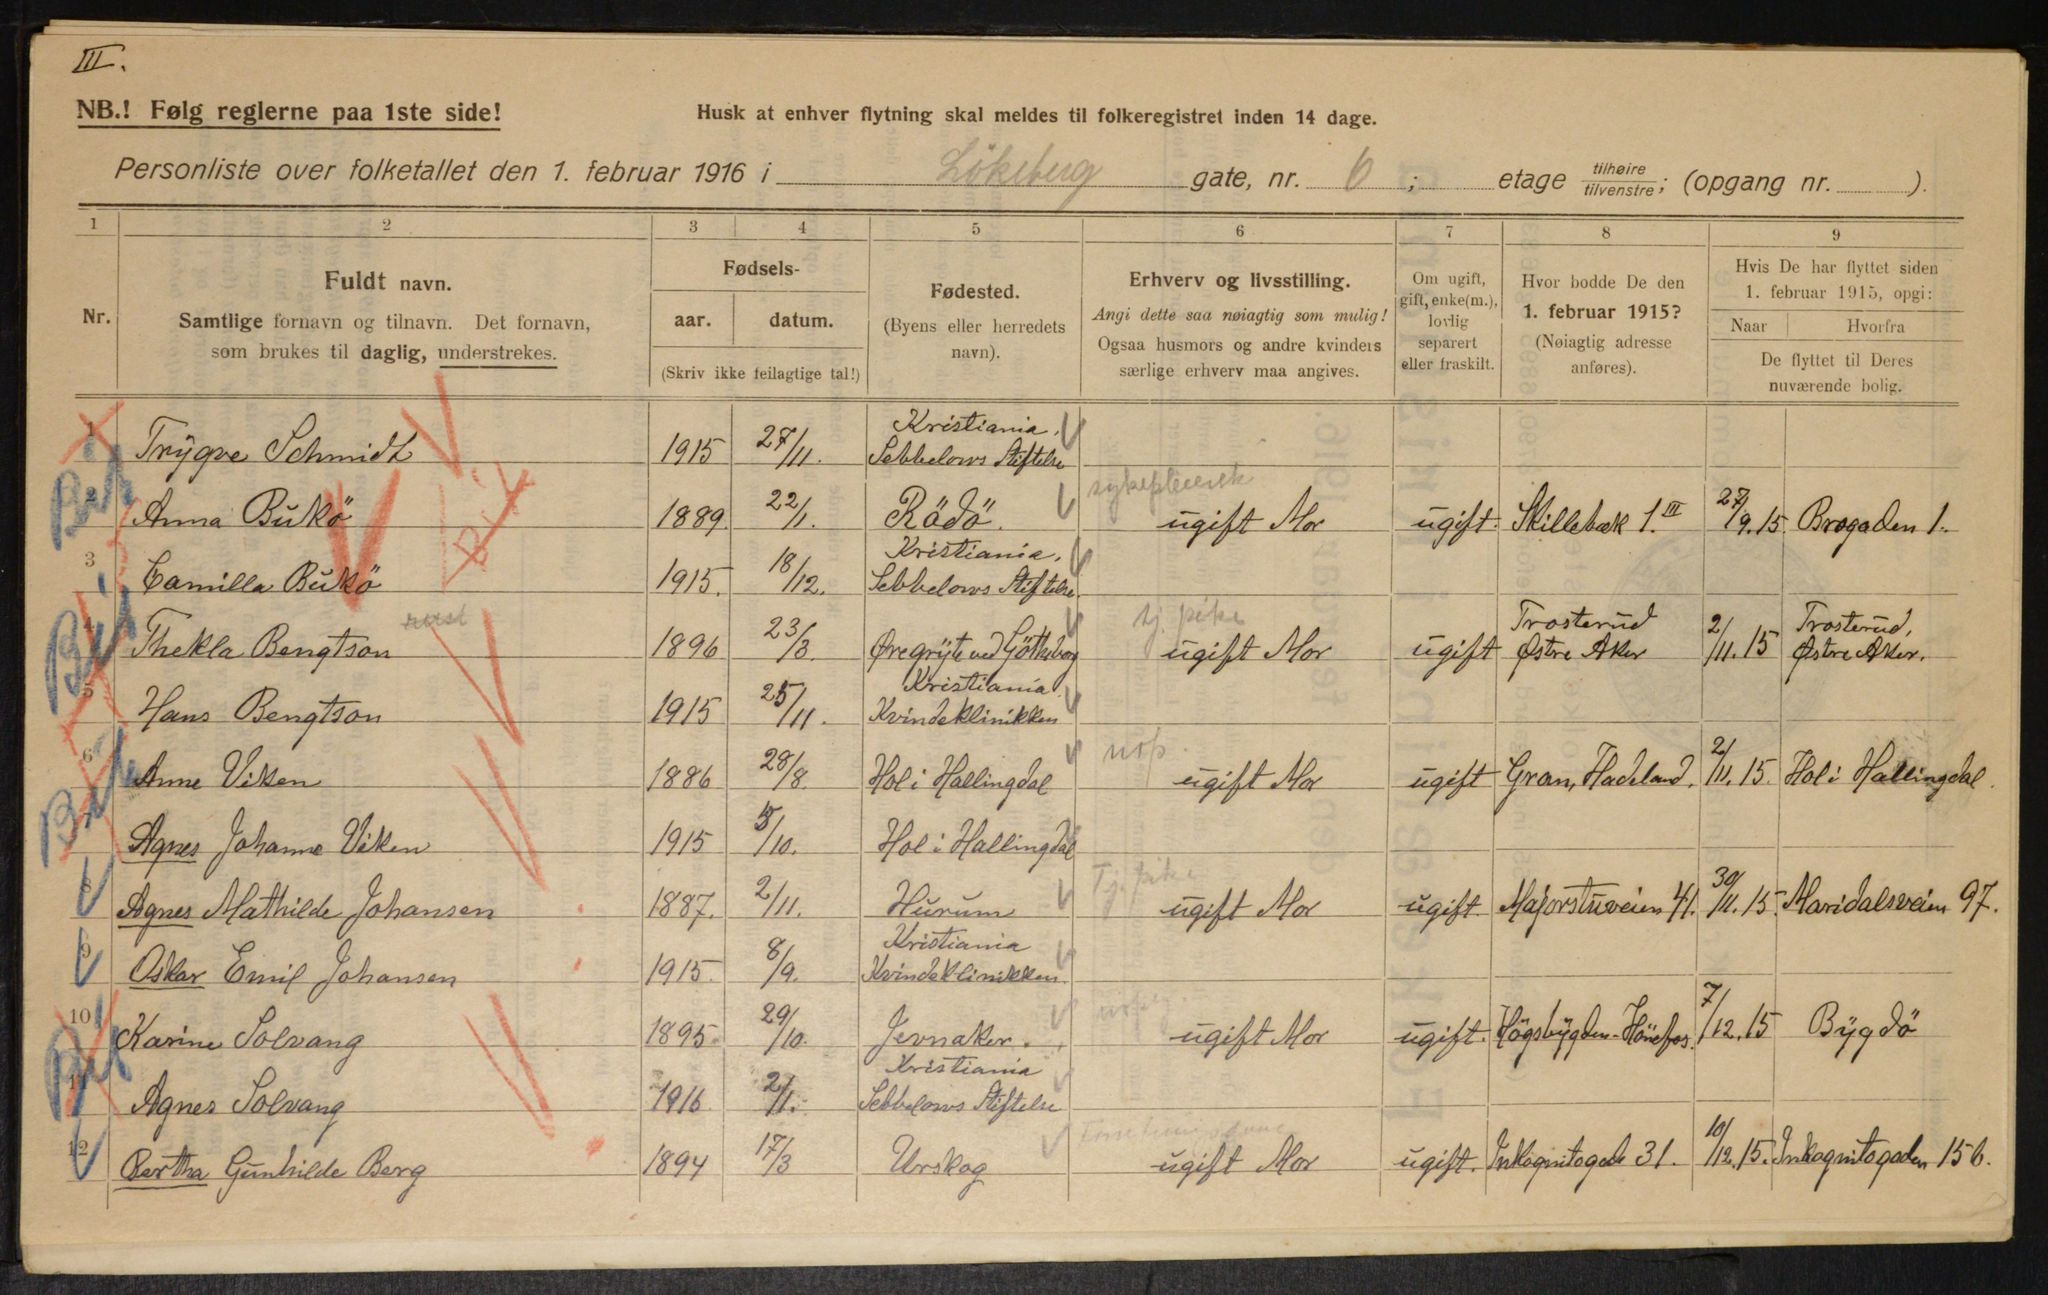 III.
NB.! Følg reglerne paa 1ste side!
Husk at enhver flytning skal meldes til folkeregistret inden 14 dage.
Personliste over folketallet den 1. februar 1916 i Lökeberg gate, nr. 6; etage tilhøire tilvenstre; (opgang nr. ).
1 2 3 4 5 6 7 8 9
Nr.
Fuldt navn.
Samtlige fornavn og tilnavn. Det fornavn,
som brukes til daglig, understrekes.
Fødsels-
aar. datum.
(Skriv ikke feilagtige tal!)
Fødested.
(Byens eller herredets
navn).
Erhverv og livsstilling.
Angi dette saa nøiagtig som mulig!
Ogsaa husmors og andre kvinders
særlige erhverv maa angives.
Om ugift,
gift, enke(m.),
lovlig
separert
eller fraskilt.
Hvor bodde De den
1. februar 1915?
(Nøiagtig adresse
anføres).
Hvis De har flyttet siden
1. februar 1915, opgi:
Naar Hvorfra
De flyttet til Deres
nuværende bolig.
1 Trygve Schmidt 1915 27/11. Kristiania, Sebbelows Stiftelse
2 Anna Bukö 1889. 22/1. Rödö. ugift Mor ugift. Skillebæk 1.III 27/9.15. Brogaden 1.
3 Camilla Bukö 1915. 18/12. Kristiania, Sebbelows Stiftelse.
4 Thekla Bengtson 1896 23/3. Øregryte ved Götheborg tj. pike ugift Mor ugift Trosterud Østre Aker 2/11.15 Trosterud, Østre Aker.
5 Hans Bengtson 1915 25/11. Kristiania Kvindeklinikken
6 Anne Viken 1886 28/8. Hol i Hallingdal ugift Mor ugift Gran, Hadeland. 2/11.15. Hol i Hallingdal.
7 Agnes Johanne Viken 1915 5/10. Hol i Hallingdal
8 Agnes Mathilde Johansen 1887. 2/11. Hurum Tj. pike ugift Mor ugift. Majorstuveien 41. 30/11.15. Maridalsveien 97.
9 Oskar Emil Johansen 1915. 8/9. Kristiania Kvindeklinikken.
10 Karine Solvang 1895. 29/10. Jevnaker. ugift Mor ugift. Högsbygden-Hönefos. 7/12.15 Bygdö
11 Agnes Solvang 1916 2/1. Kristiania Sebbelows Stiftelse
12 Bertha Gunhilde Berg 1894 17/3 Urskog ugift Mor ugift. Inkognitogade 31. 10/12.15. Inkognitogaden 15b.